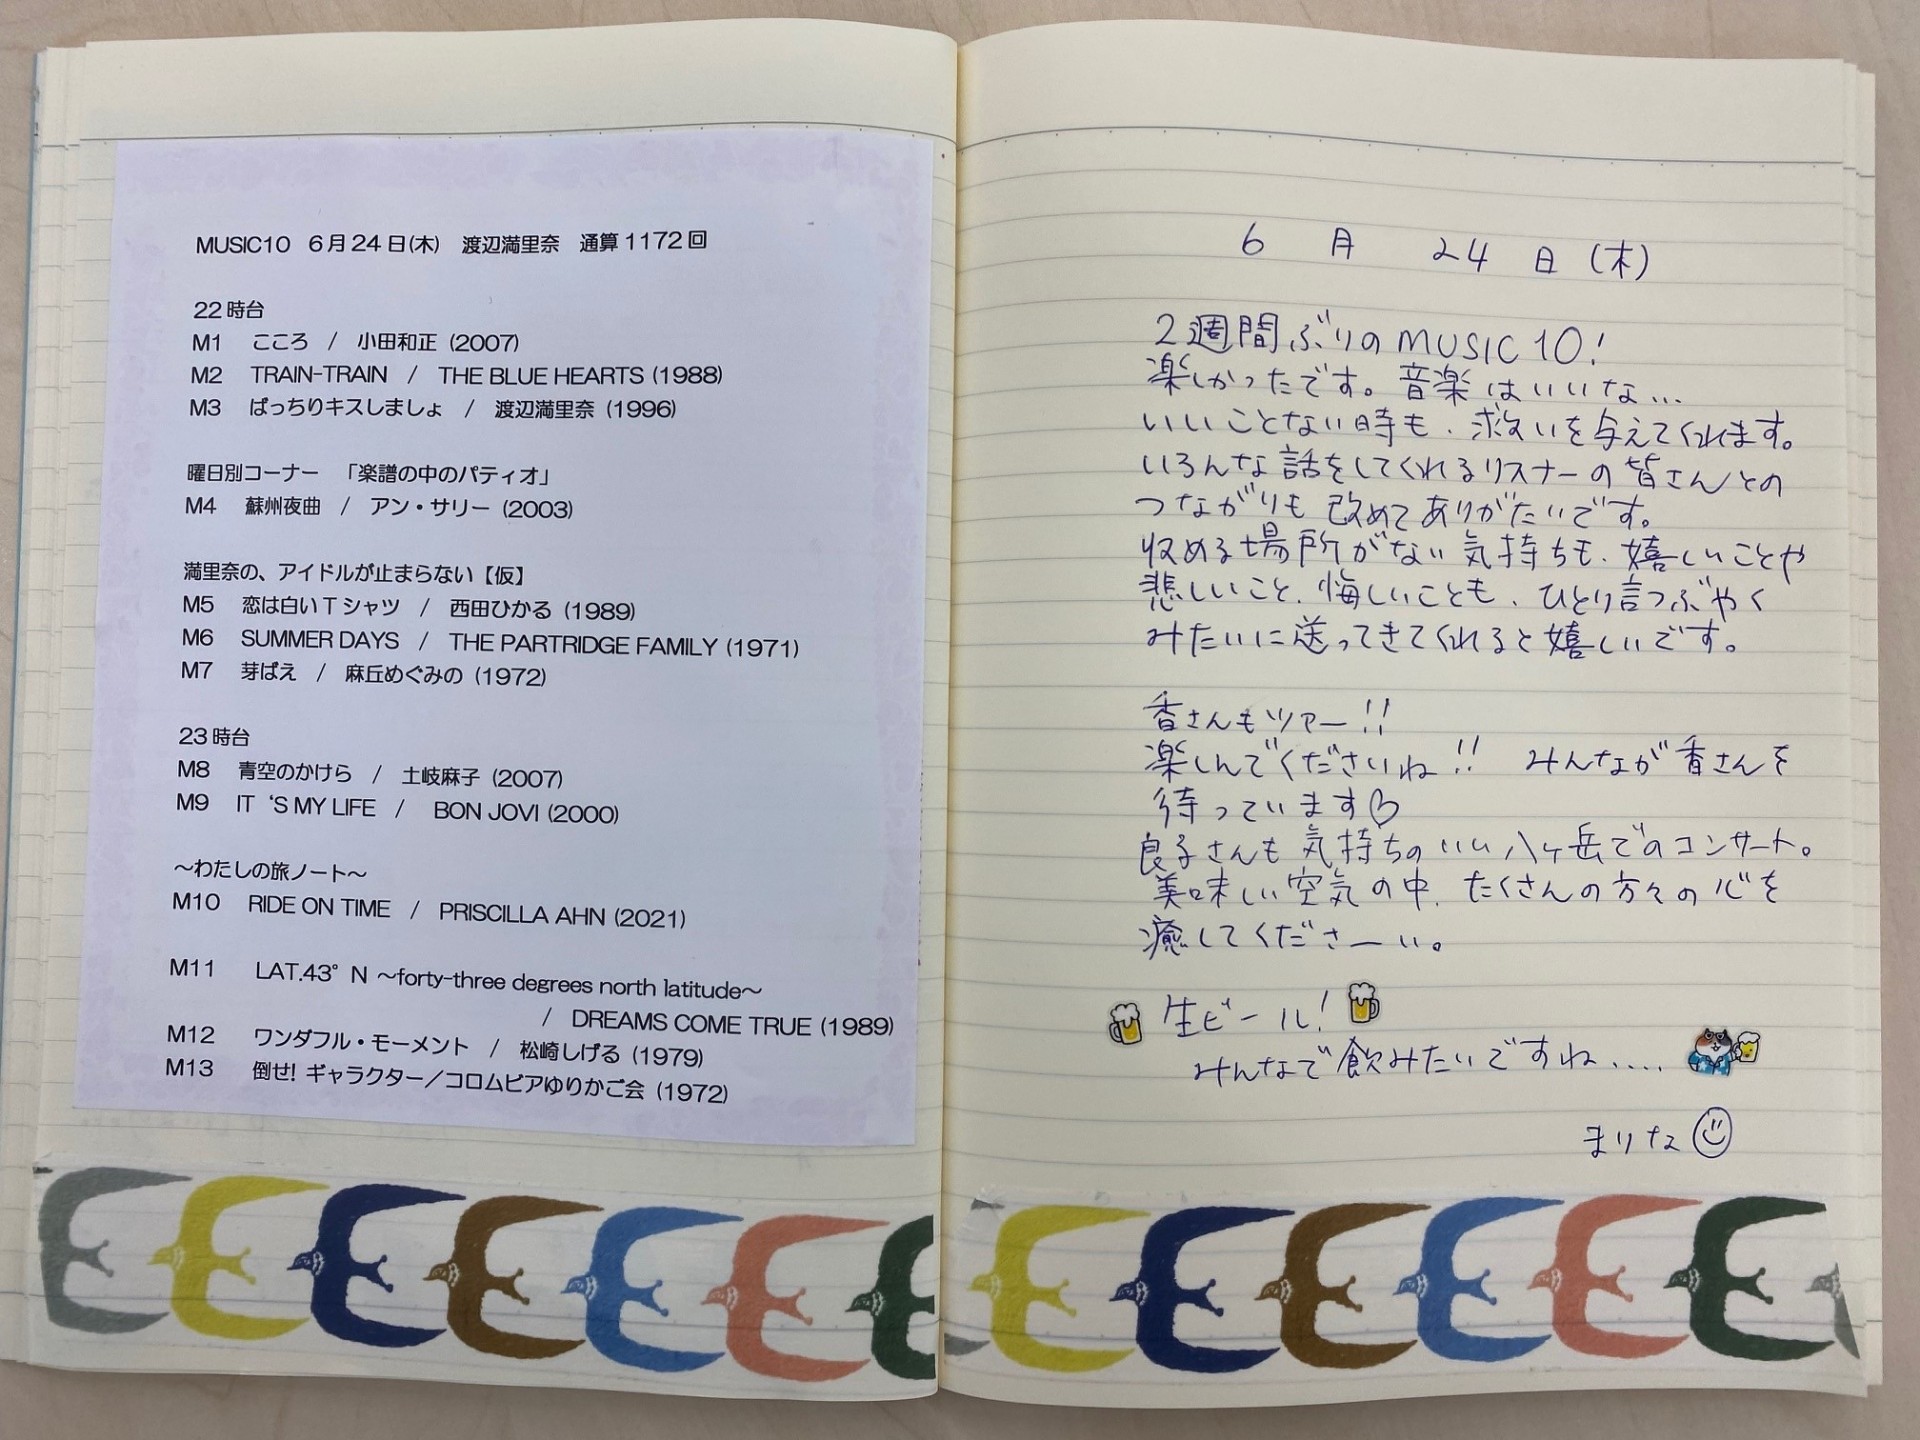 MUSIC10 6月24日(木) 渡辺満里奈 通算1172回
22時台
M1 こころ / 小田和正 (2007)
M2 TRAIN-TRAIN / THE BLUE HEARTS (1988)
M3 ばっちりキスしましょ / 渡辺満里奈 (1996)
曜日別コーナー 「楽譜の中のパティオ」
M4 蘇州夜曲 / アン・サリー (2003)
満里奈の、アイドルが止まらない【仮】
M5 恋は白いTシャツ / 西田ひかる (1989)
M6 SUMMER DAYS / THE PARTRIDGE FAMILY (1971)
M7 芽ばえ / 麻丘めぐみの (1972)
23時台
M8 青空のかけら / 土岐麻子 (2007)
M9 IT 'S MY LIFE / BON JOVI (2000)
～わたしの旅ノート～
M10 RIDE ON TIME / PRISCILLA AHN (2021)
M11 LAT.43° N ～forty-three degrees north latitude～
/ DREAMS COME TRUE (1989)
M12 ワンダフル・モーメント / 松崎しげる (1979)
M13 倒せ! ギャラクター／コロムビアゆりかご会 (1972)
6月24日(木)
2週間ぶりのMUSIC10!
楽しかったです。音楽はいいな...
いいことない時も、救いを与えてくれます。
いろんな話をしてくれるリスナーの皆さんとの
つながりも改めてありがたいです。
収める場所がない気持ちも、嬉しいことや
悲しいこと、悔しいことも、ひとり言つぶやく
みたいに送ってきてくれると嬉しいです。
香さんもツアー!!
楽しんでくださいね!! みんなが香さんを
待っています♡
良子さんも気持ちのいい八ヶ岳でのコンサート。
美味しい空気の中、たくさんの方々の心を
癒してくださーい。
生ビール!
みんなで飲みたいですね....
まりな